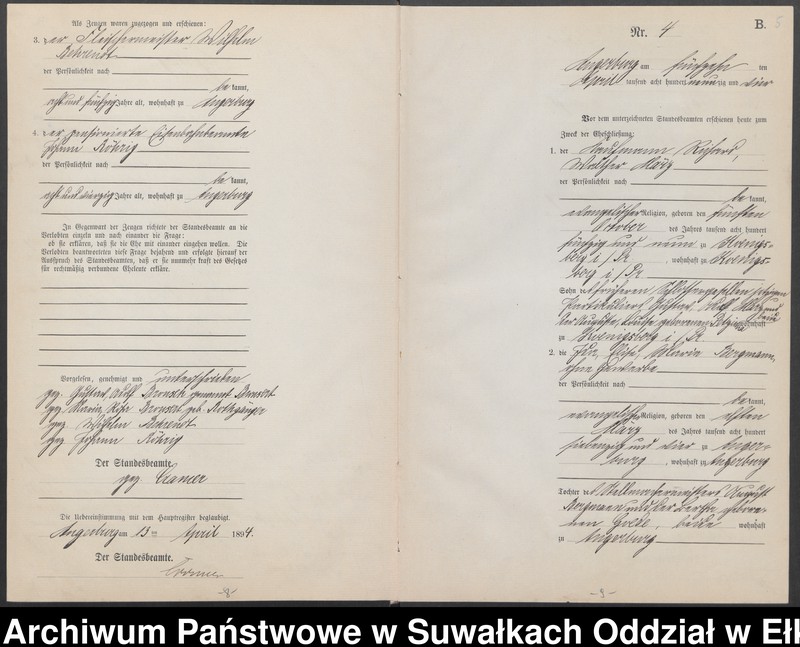 Als Zeugen waren zugezogen und erschienen:
3. der Fleischermeister Wilhelm
Behrendt
der Persönlichkeit nach
be kannt,
acht und fünfzig Jahre alt, wohnhaft zu Angerburg
4. der pensionierte Eisenbahnbeamte
Johann Röhrig
der Persönlichkeit nach
be kannt,
acht und vierzig Jahre alt, wohnhaft zu Angerburg
In Gegenwart der Zeugen richtete der Standesbeamte an die
Verlobten einzeln und nach einander die Frage:
ob sie erklären, daß sie die Ehe mit einander eingehen wollen. Die
Verlobten beantworteten diese Frage bejahend und erfolgte hierauf der
Ausspruch des Standesbeamten, daß er sie nunmehr kraft des Gesetzes
für rechtmäßig verbundene Eheleute erkläre.
Vorgelesen, genehmigt und unterschrieben
gez. Gustav Adolf genannt
gez. Maria geb. Rothgänger
gez. Wilhelm Behrendt
gez. Johann Röhrig
Der Standesbeamte.
gez. Cramer
Die Uebereinstimmung mit dem Hauptregister beglaubigt.
Angerburg am 15 ten April 1894.
Der Standesbeamte.
Cramer
-8-
B. 5
Nr. 4
Angerburg am fünfzehn ten
April tausend acht hundert neunzig und vier
Vor dem unterzeichneten Standesbeamten erschienen heute zum
Zweck der Eheschließung:
1. der Kaufmann Richard,
Walther März
der Persönlichkeit nach
be kannt,
evangelischer Religion, geboren den fünften
October des Jahres tausend acht hundert
fünfzig und neun zu Koenigs-
berg i/Pr. , wohnhaft zu Koenigs-
berg i/Pr
Sohn des früheren jetzigen
Partikuliers Gustav, Adolf März und
der Auguste, Louise geborenen beide wohnhaft
zu Koenigsberg i/Pr.
2. die Ida, Elise, Maria Bergmann,
ohne Gewerbe
der Persönlichkeit nach
be kannt,
evangelischer Religion, geboren den elften
März des Jahres tausend acht hundert
siebenzig und vier zu Anger-
burg , wohnhaft zu Angerburg
Tochter des Stellmachermeisters August
Bergmann und der Bertha gebore-
nen Golde, beide wohnhaft
zu Angerburg
-9-
Archiwum Państwowe w Suwałkach Oddział w Ełk